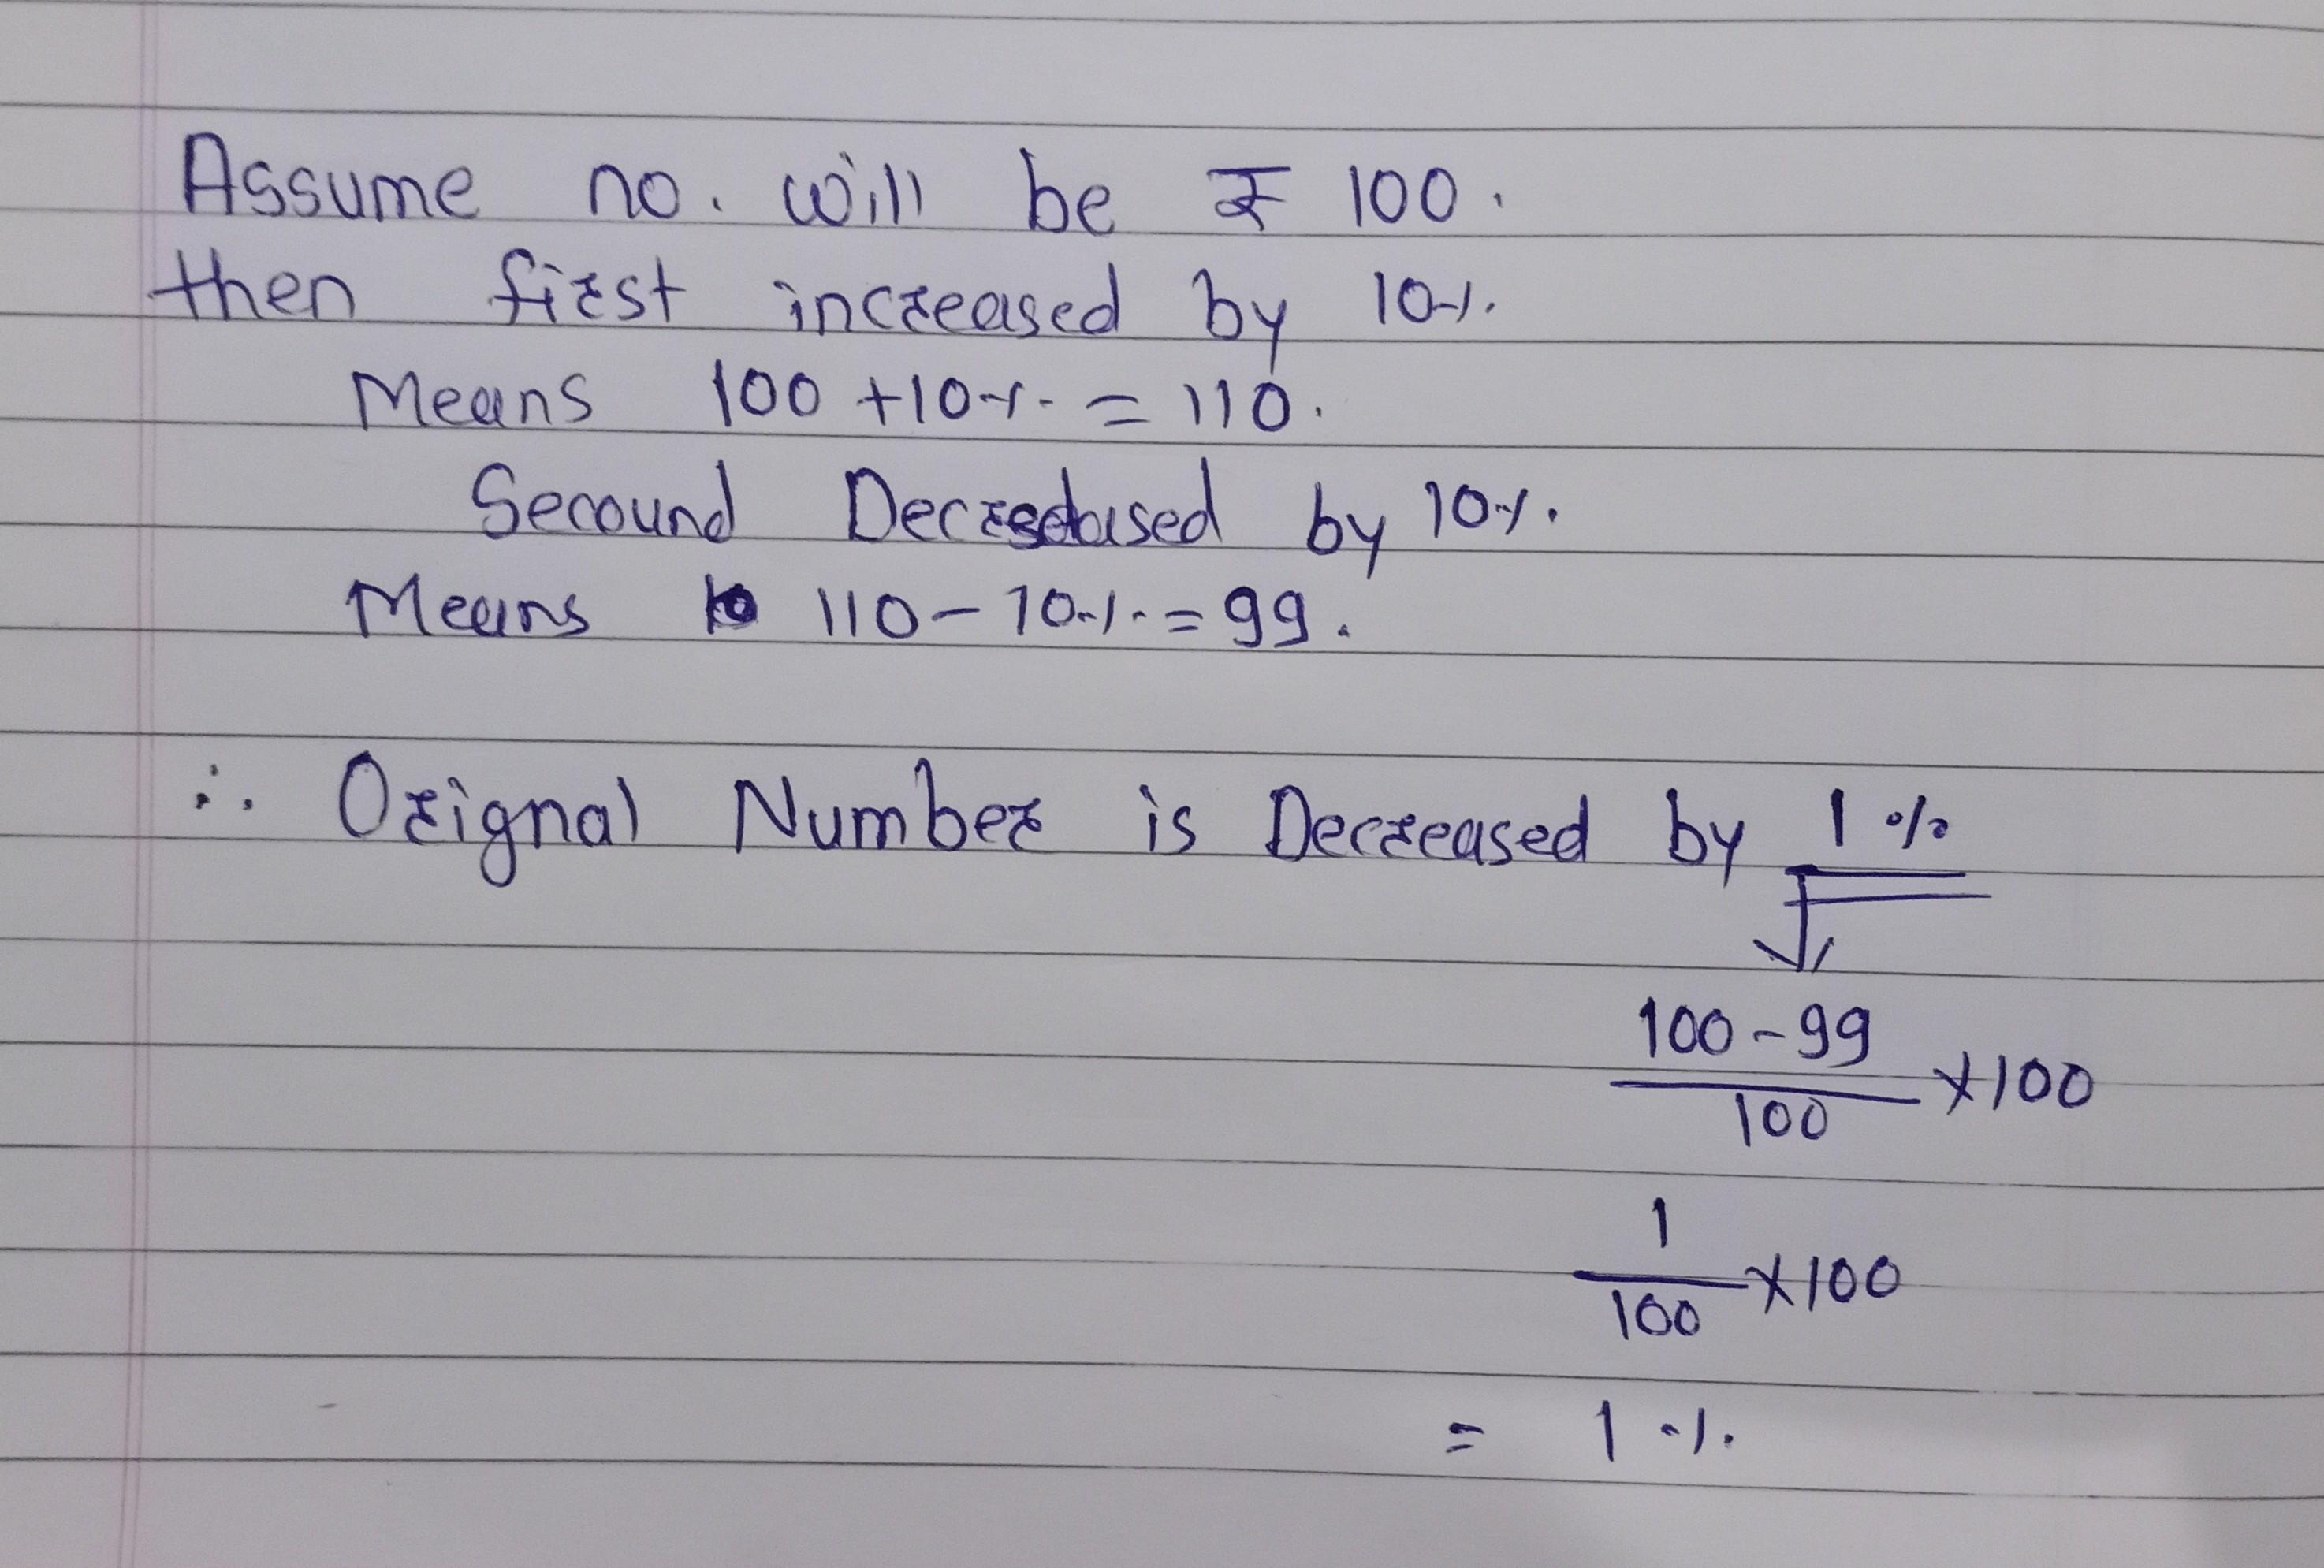 Assume no. will be ₹ 100.
then first increased by 10%.
Means 100 + 10% = 110.
Secound Decreased by 10%.
Means 110 - 10% = 99.
∴ Orignal Number is Decreased by 1%
100-99
100 ×100
1
100 ×100
= 1%